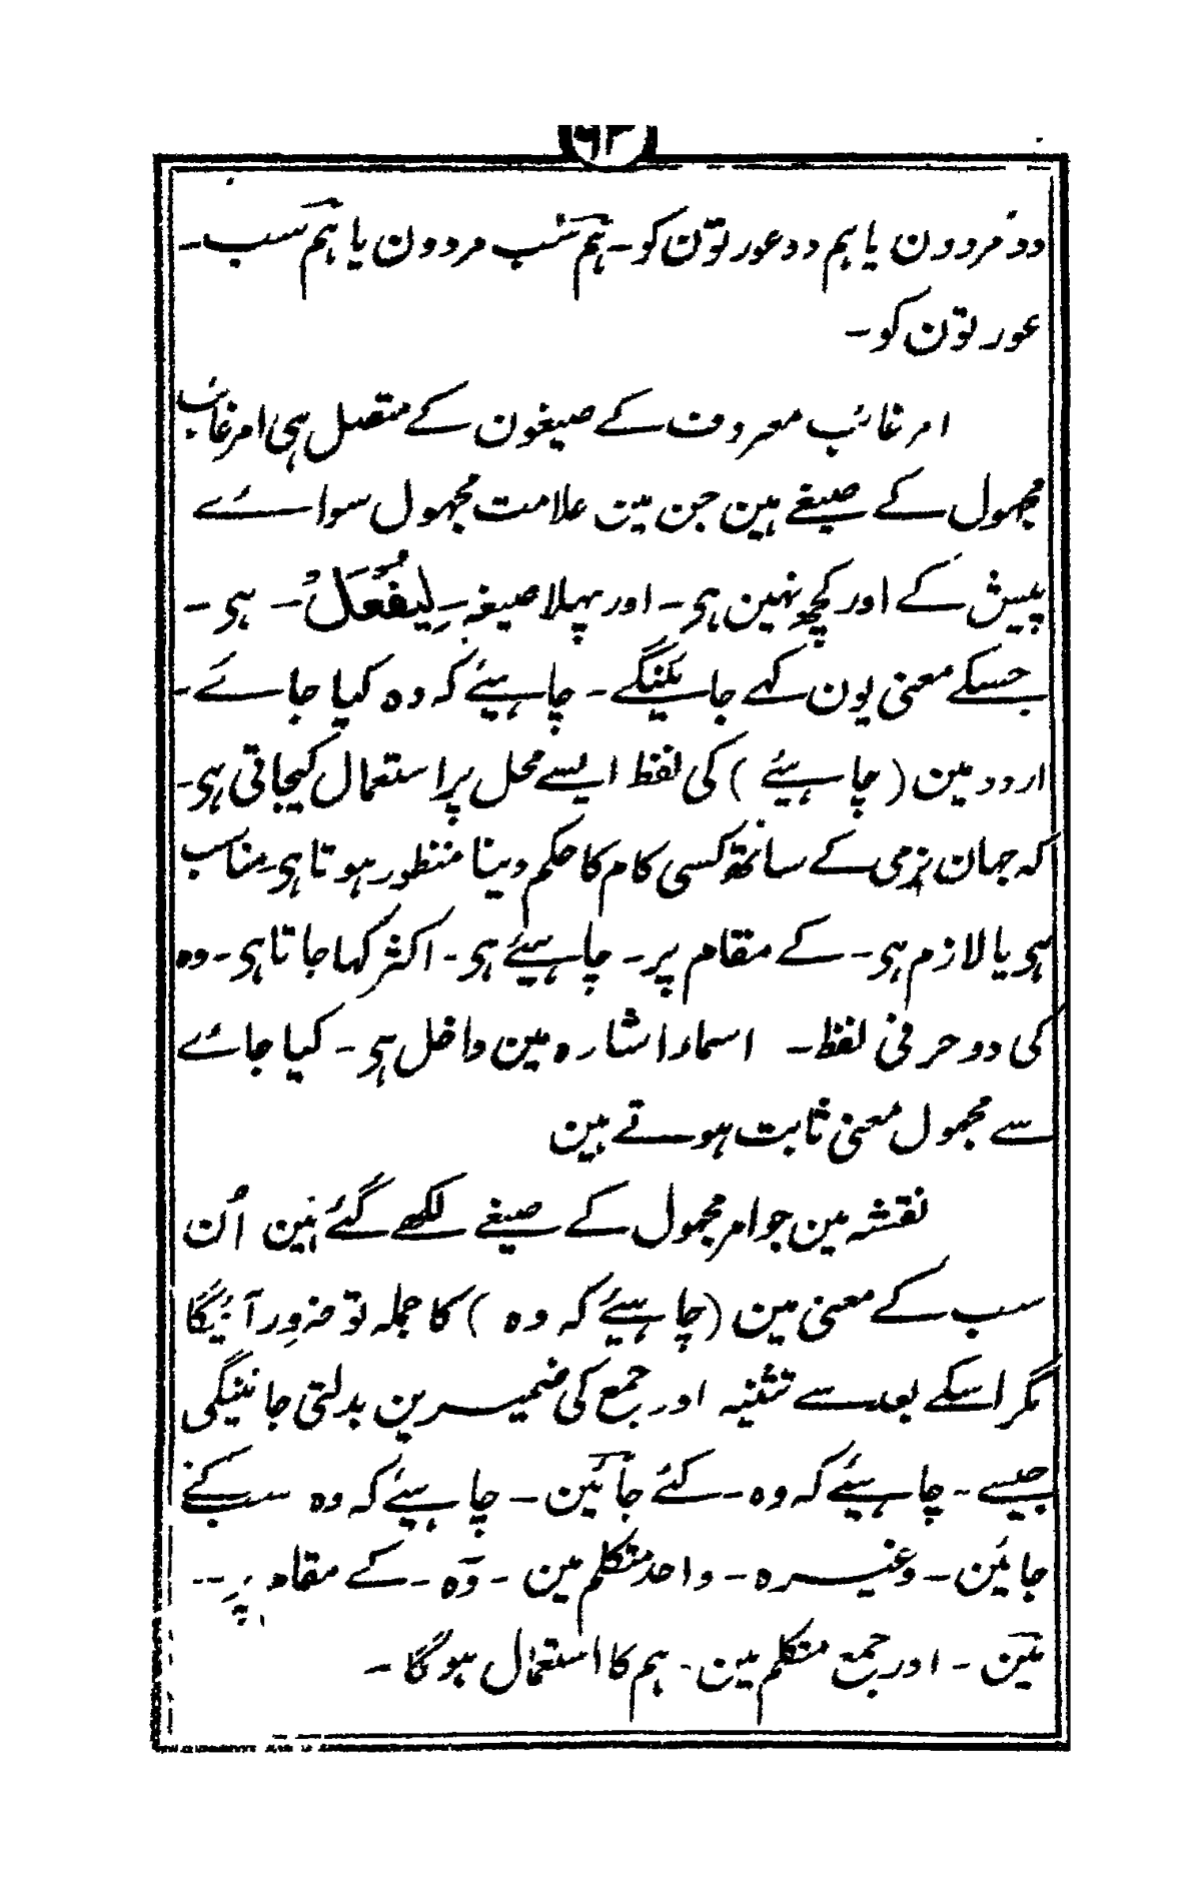 ۶۳
دو مردون یا ہم دو عورتون کو۔ ہم سب مردون یا ہم سب۔
عورتون کو۔
امر غائب معروف کے صیغون کے متصل ہی امر غائب
مجہول کے صیغے ہین جن مین علامت مجہول سوائے
پیش کے اور کچھ نہین ہی۔ اور پہلا صیغہ۔ لِیُفْعَلْ۔ ہی۔
جسکے معنی یون کہے جائینگے۔ چاہیئے کہ وہ کیا جائے۔
اردو مین (چاہیئے) کی لفظ ایسے محل پر استعمال کیجاتی ہی۔
کہ جہان نرمی کے ساتھ کسی کام کا حکم دینا منظور ہوتا ہی۔ مناسب
ہی یا لازم ہی۔ کے مقام پر۔ چاہیئے ہی۔ اکثر کہا جاتا ہی۔ وہ
کی دو حرفی لفظ۔ اسماء اشارہ مین داخل ہی۔ کیا جائے
سے مجہول معنی ثابت ہوتے ہین
نقشہ مین جو امر مجہول کے صیغے لکھے گئے ہین اُن
سب کے معنی مین (چاہیئے کہ وہ) کا جملہ تو ضرور آئیگا
مگر اسکے بعد سے تثنیہ اور جمع کی ضمیرین بدلتی جائینگی
جیسے۔ چاہیئے کہ وہ۔ کئے جائین۔ چاہیئے کہ وہ سب کئے
جائین۔ وغیرہ۔ واحد متکلم مین۔ وہ۔ کے مقام پر۔۔
مین۔ اور جمع متکلم مین۔ ہم کا استعمال ہوگا۔